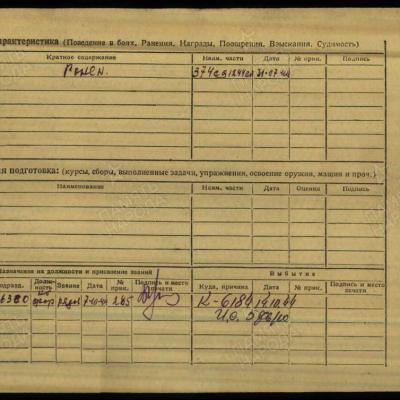 арактеристика (Поведение в боях, Ранения, Награды, Поощрения, Взыскания, Судимость)
Краткое содержание Наим. части Дата № прик. Подпись
Ранен. 374сд 1244сп 31-07-44
я подготовка: (курсы, сборы, выполненные задачи, упражнения, освоение оружия, машин и проч.)
Наименование Наим. части Дата Оценка Подпись
Назначения на должности и присвоение званий Выбытия
подразд. Должность Звание Дата № прик. Подпись и место печати Куда, причина Дата № прик. Подпись и место печати
рядов 7-10-44 285 К-6184 19.10.44